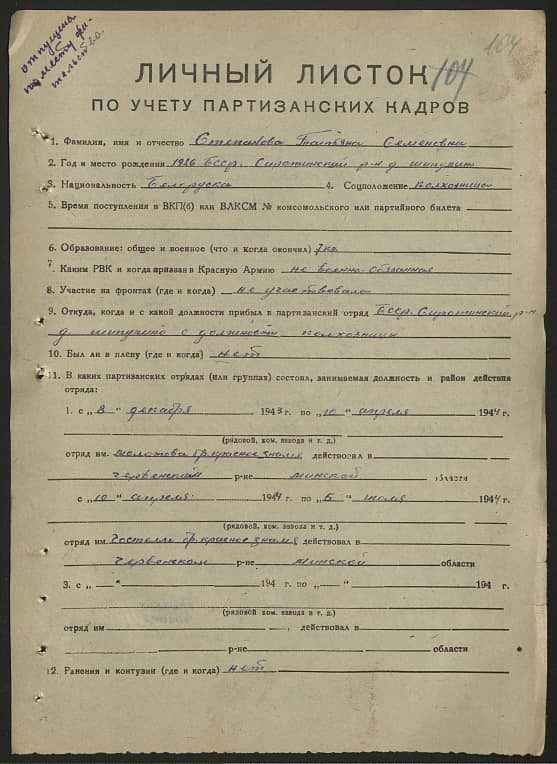 отпущена
по месту жи-
тельства.
104
104
ЛИЧНЫЙ ЛИСТОК
ПО УЧЕТУ ПАРТИЗАНСКИХ КАДРОВ
1. Фамилия, имя и отчество Степанова Татьяна Семеновна
2. Год и место рождения 1926 БССР. Сиротинский р-н д. Шипулино
3. Национальность Белоруска 4. Соцположение колхозница
5. Время поступления в ВКП(б) или ВЛКСМ № комсомольского или партийного билета
6. Образование: общее и военное (что и когда окончил) 7 кл.
7. Каким РВК и когда призван в Красную Армию не военно-обязанная
8. Участие на фронтах (где и когда) не участвовала
9. Откуда, когда и с какой должности прибыл в партизанский отряд БССР. Сиротинский р-н
д. Шипулино с должности колхозницы
10. Был ли в плену (где и когда) нет
11. В каких партизанских отрядах (или группах) состоял, занимаемая должность и район действия
отряда:
1. с „8“ декабря 1943 г. по „10“ апреля 1944 г.
(рядовой, ком. взвода и т. д.)
отряд им. Молотова бр. красное знамя действовал в
Червенский р-не Минской области
с „10“ апреля 1944 г. по „5“ июля 1944 г.
(рядовой, ком. взвода и т. д.)
отряд им. Гастелло бр. красное знамя действовал в
Червенском р-не Минской области
3. с „—“ 194 г. по „—“ 194 г.
(рядовой, ком. взвода и т. д.)
отряд им. действовал в
р-не области
12. Ранения и контузии (где и когда) нет